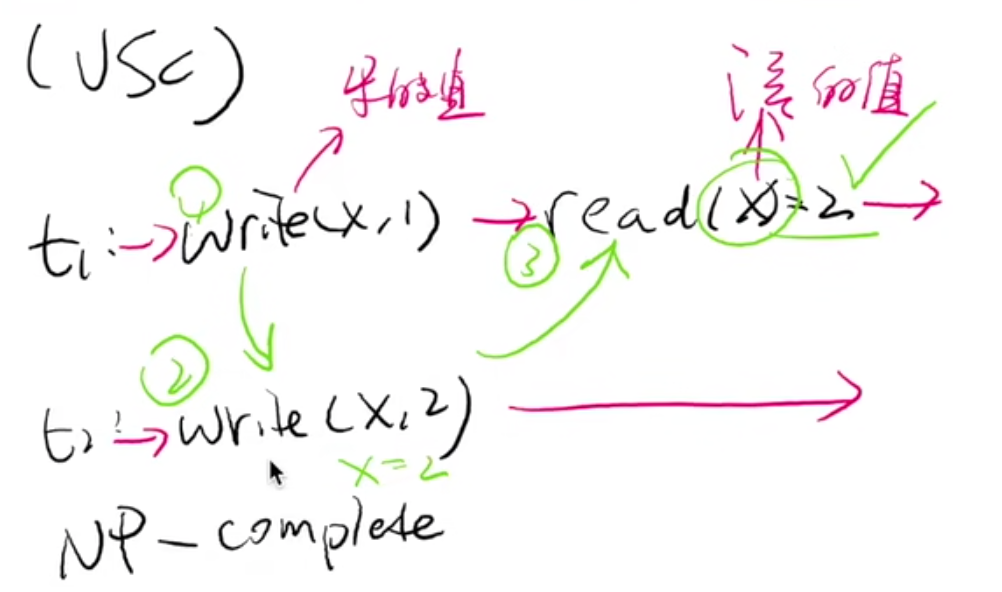 (VSC)
写的值
读的值
① t₁: → write(x,1) → ③ read(x)=2 →
② t₂: → write(x,2) →
x=2
NP-complete